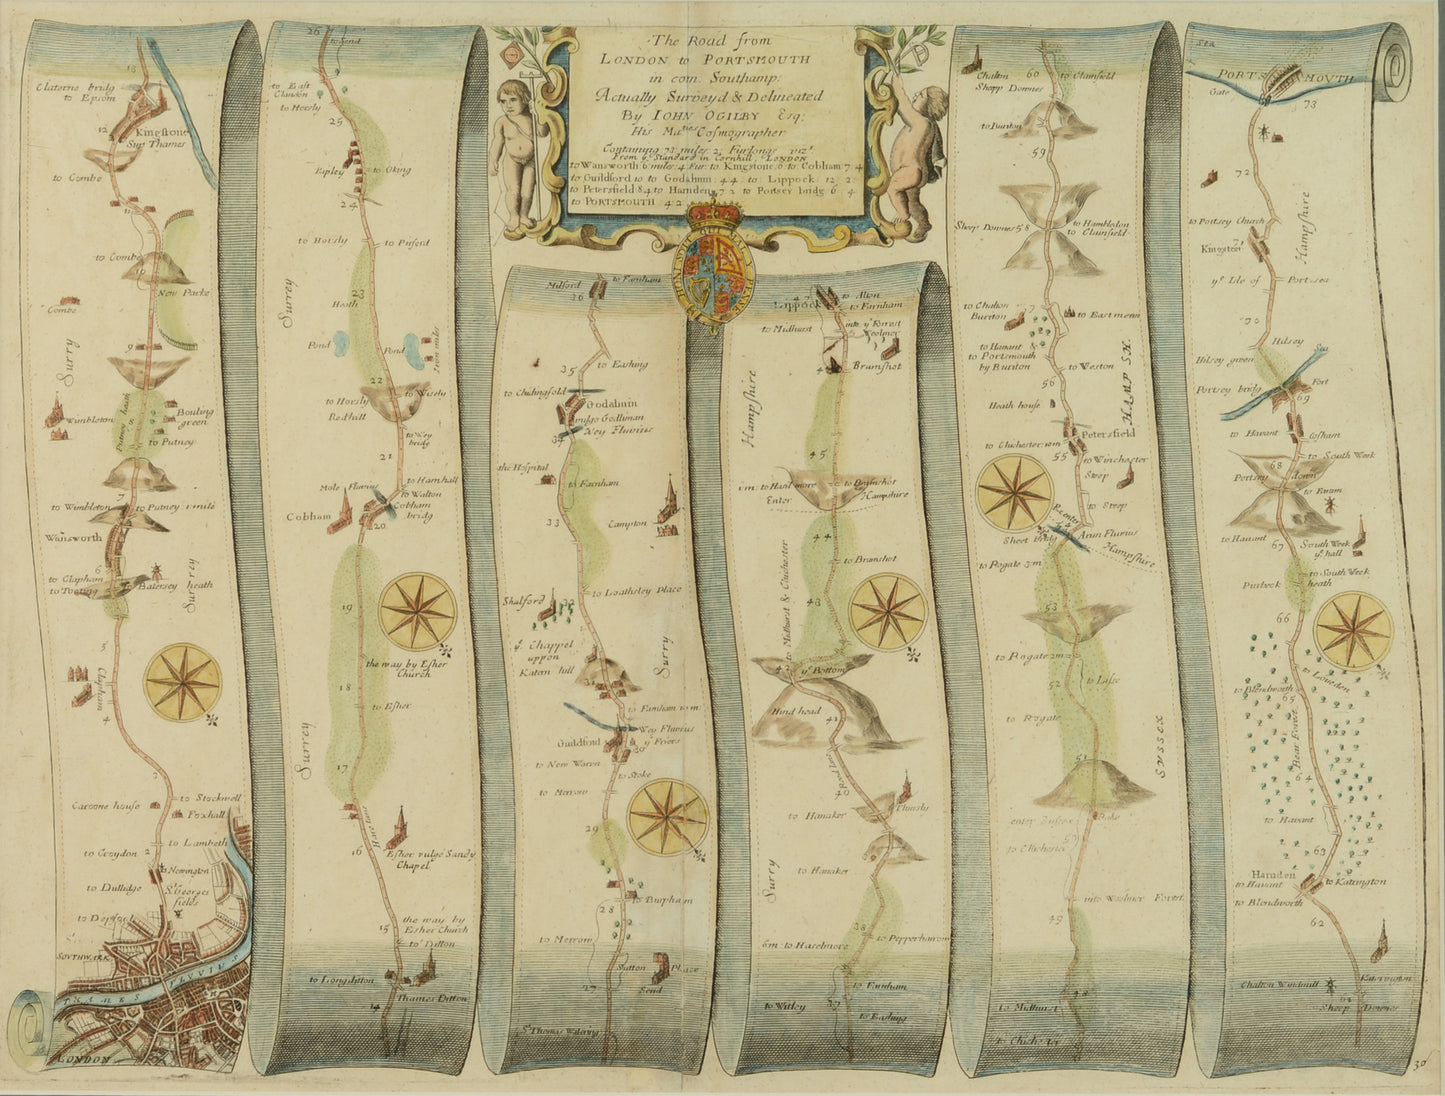 The Road from
LONDON to PORTSMOUTH
in com: Southamp:
Actually Surveyd & Delineated
By IOHN OGILBY Esq;
His Maties Cosmographer
Containing 73 miles 2 Furlongs vizt
From ye Standard in Cornhill LONDON
to Wansworth 6 miles 4 Fur to Kingstone 6 to Cobham 7 4
to Guildford 10 to Godalmin 4 4 to Lippock 12 2
to Petersfield 8 4 to Harnden 7 2 to Portsey bridg 6 4
to PORTSMOUTH 4 2
HONI SOIT QUI MAL Y PENSE
13
Claterne bridg
to Epsom
12
Kingstone
Sup Thames
to Combe
11
to Combe
10
New Parke
Combe
9
Surry
Wimbleton
Putney heath
Bouling
green
to Putney
7
to Wimbleton
to Putney 1 mile
Wansworth
6
to Clapham
to Tooting
Batersey heath
Surrey
5
Clapham
4
3
Caroone house
to Stockwell
Foxhall
to Lambeth
to Croydon
2
Newington
to Dullidge
St Georges
fields
to Depford
SOUTHWARK
THAMES FLUVIUS
LONDON
26
to Send
to East
Clandon
to Horsly
25
Ripley
to Oking
24
to Horsly
to Puford
Surrey
23
Heath
Pond
Pond
Iron miles
22
to Horsly
to Wisely
Redhill
to Wey
bridg
21
to Hamhall
Mole Fluvius
to Walton
Cobham
Cobham
bridg
20
19
the way by Esher
Church
18
to Esher
Surrey
17
16
Esher vulgo Sandy
Chapel
the way by
15
Esher Church
to Ditton
to Longditton
Thames Ditton
14
Milford
to Farnham
36
35
to Eashing
to Chidingfold
Godalmin
vulgo Godliman
Wey Fluvius
34
the Hospital
to Farnham
33
Compton
to Loathsley Place
Shalford
32
ye Chappel
uppon
Katern hill
31
Surry
to Farnham 10 m
Wey Fluvius
Guildford
ye Friers
30
to New Warn
to Stoke
to Merrow
29
to Burpham
28
to Merrow
Sutton Place
27
Send
St Thomas Watering
Lippock
to Alton
to Farnham
to Midhurst
into ye Forrest
Woolmer
Bramshot
Hampshire
45
1 m. to Haslmore
to Bramshot
Enter
Hampshire
44
to Bramshot
to Midhurst & Chichester
43
ye Bottom
Hind head
41
Road Lane
40
Thursly
to Hanaker
Surry
to Hanaker
38
to Pepperharrow
6m. to Haselmore
to Farnham
to Witley
37
to Eashing
Chalton
60
to Clainfield
Shepp Downes
to Buriton
59
Sheep Downes
58
to Hambledon
to Clainfield
to Chalton
57
Buriton
to East mean
to Havant &
to Portsmouth
by Buriton
to Weston
56
Heath house
HAMP SH.
Petersfield
to Chichester 10 m
55
to Winchester
Steep
to Steep
Reenter
54
Sheet bridg
Arun Fluvius
Hampshire
to Rogate 3 m
53
to Rogate 2 m
52
to Lise
to Rogate
51
Sussex
enter Sussex
Rake
50
to Chichester
into Woolmer Forest
49
48
to Midhurst
to Chich
Sea
PORTSMOUTH
Gate
73
72
to Portsey Church
Kingston
71
Hampshire
ye Isle of
Portsea
70
Hilsey
Hilsey green
Sea
Portsey bridg
Fort
69
to Havant
Cosham
to South Week
68
Portsey down
to Faram
to Havant
67
South Week
ye hall
to South Week
Purbeck
heath
66
to London
to Blendworth
65
Bear Forest
64
to Havant
63
Harnden
to Havant
to Katrington
to Blendworth
62
Katrington
Chalton Windmill
61
Sheep
Downes
30